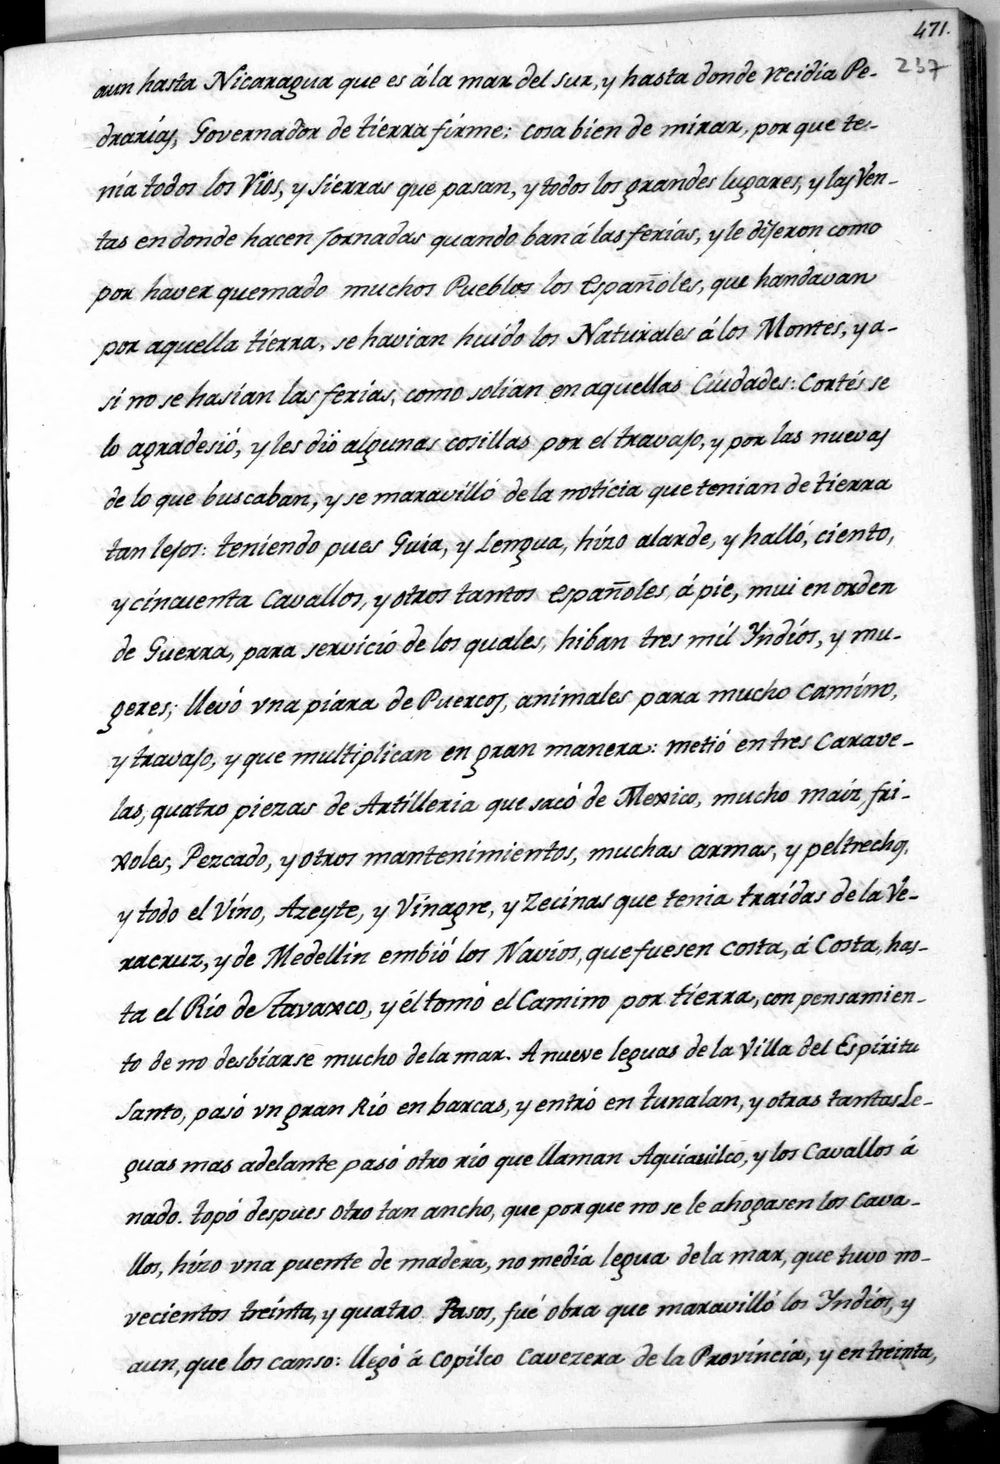 471.
237
aun hasta Nicaragua que es á la mar del sur, y hasta donde recidia Pe-
drarias, Governador de tierra firme: cosa bien de mirar, por que te-
nia todos los Rios, y Sierras que pasan, y todos los grandes lugares, y las Ven-
tas en donde hacen Jornadas quando ban á las ferias, y le dijeron como
por haver quemado muchos Pueblos los Españoles, que handavan
por aquella tierra, se havian huído los Naturales á los Montes, y a-
si no se hasian las ferias, como solian en aquellas Ciudades: Cortés se
lo agradesió, y les dió algunas cosillas por el travajo, y por las nuevas
de lo que buscaban, y se maravilló de la noticia que tenian de tierra
tan lejos: teniendo pues Guia, y Lengua, hizo alarde, y halló, ciento,
y cincuenta Cavallos, y otros tantos Españoles, á pie, mui en orden
de Guerra, para servicio de los quales, hiban tres mil Yndios, y mu-
geres; llevó vna piara de Puercos, animales para mucho camino,
y travajo, y que multiplican en gran manera: metió en tres Carave-
las, quatro piezas de Artilleria que sacó de Mexico, mucho maiz, fri-
xoles, Pezcado, y otros mantenimientos, muchas armas, y peltrechos,
y todo el Vino, Azeyte, y Vinagre, y Zecinas que tenia traídas de la Ve-
racruz, y de Medellin embió los Navios, que fuesen costa, á Costa, has-
ta el Rio de Tavaxco, y él tomó el Camino por tierra, con pensamien-
to de no desbiarse mucho de la mar. A nueve leguas de la Villa del Espiritu
Santo, pasó vn gran Rio en barcas, y entró en tunalan, y otras tantas Le-
guas mas adelante pasó otro rio que llaman Aquiauilco, y los Cavallos á
nado. topó despues otro tan ancho, que por que no se le ahogasen los Cava-
llos, hizo vna puente de madera, no media legua de la mar, que tuvo no-
vecientos treinta, y quatro Pasos, fué obra que maravilló los Yndios, y
aun, que los canso: llegó á Copilco Cavezera de la Provincia, y en treinta,